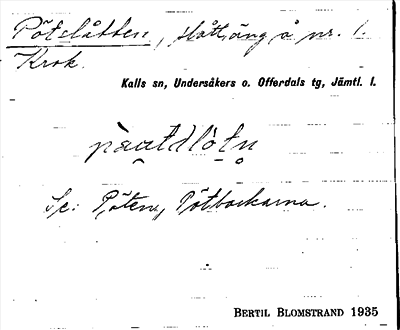 Pötslåtten, slåttäng å nr. 1.
Krok.
Kalls sn, Undersåkers o. Offerdals tg, Jämtl. l.
Se: Pöten, Pötbackarna.
BERTIL BLOMSTRAND 1935